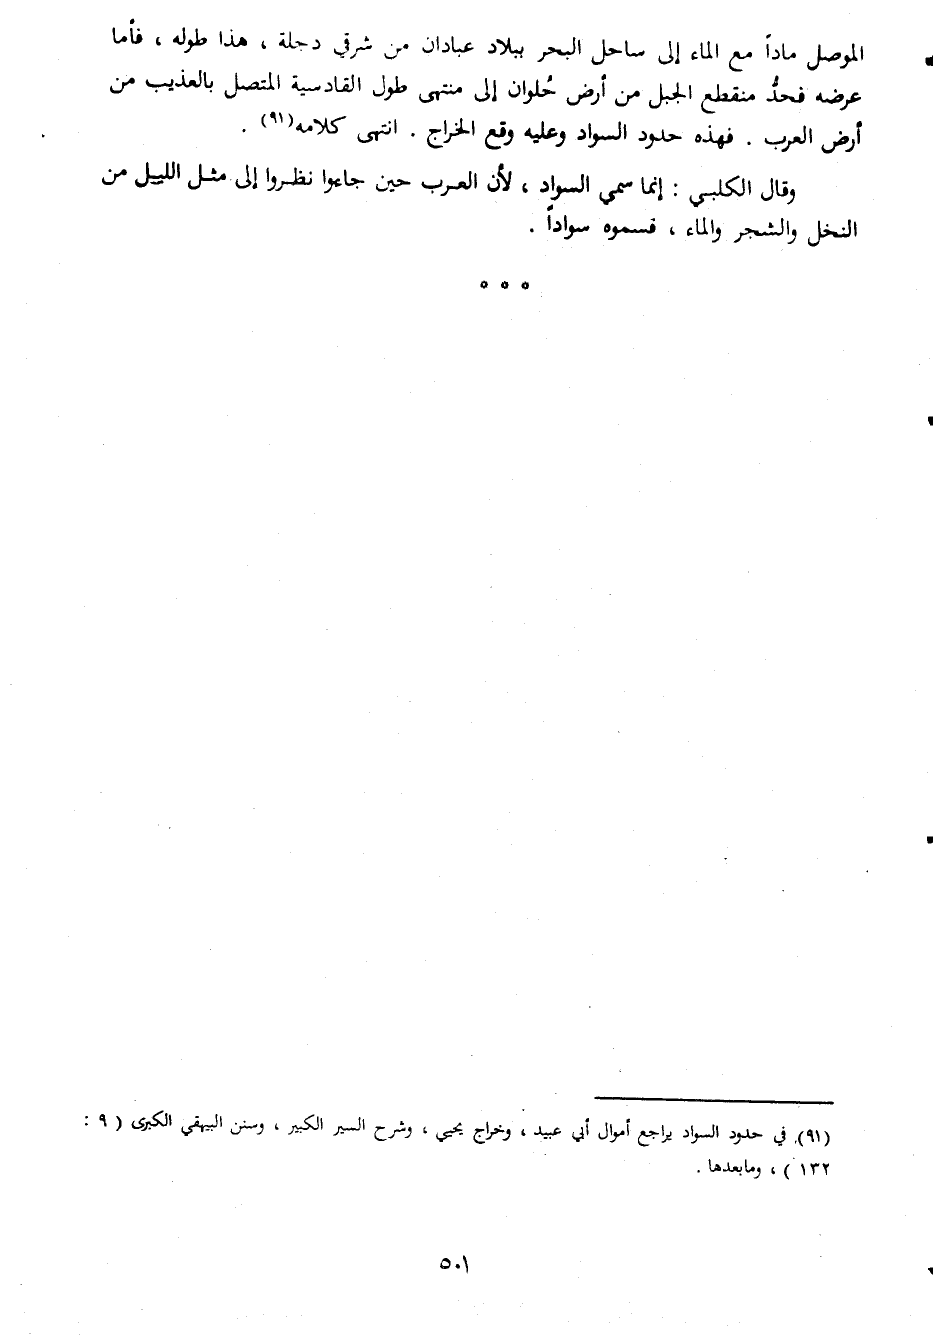 الموصل ماداً مع الماء إلى ساحل البحر ببلاد عبادان من شرقي دجلة ، هذا طوله ، فأما
عرضه فحدُّ منقطع الجبل من أرض حُلوان إلى منتهى طول القادسية المتصل بالعذيب من
أرض العرب . فهذه حدود السواد وعليه وقع الخراج . انتهى كلامه(٩١) .
وقال الكلبي : إنما سمي السواد ، لأن العرب حين جاءوا نظروا إلى مثل الليل من
النخل والشجر والماء ، فسموه سواداً .
° ° °
(٩١) في حدود السواد يراجع أموال أبي عبيد ، وخراج يحيي ، وشرح السير الكبير ، وسنن البيهقي الكبرى ( ٩ :
١٣٢ ) ، ومابعدها .
٥٠١